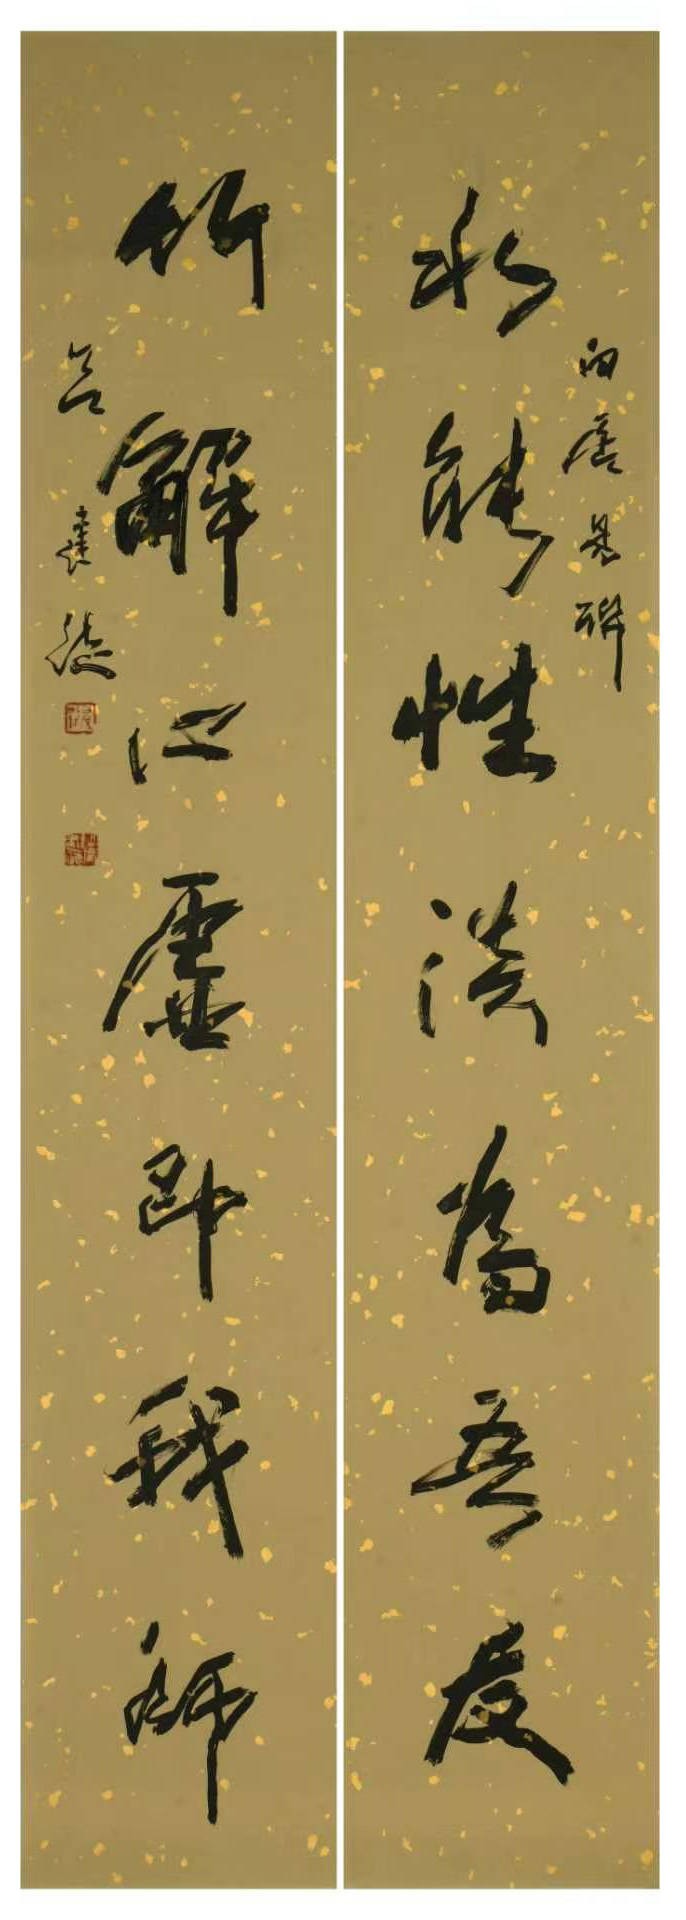 水能性淡為吾友
白居易聯
竹解心虛即我師
吕建德